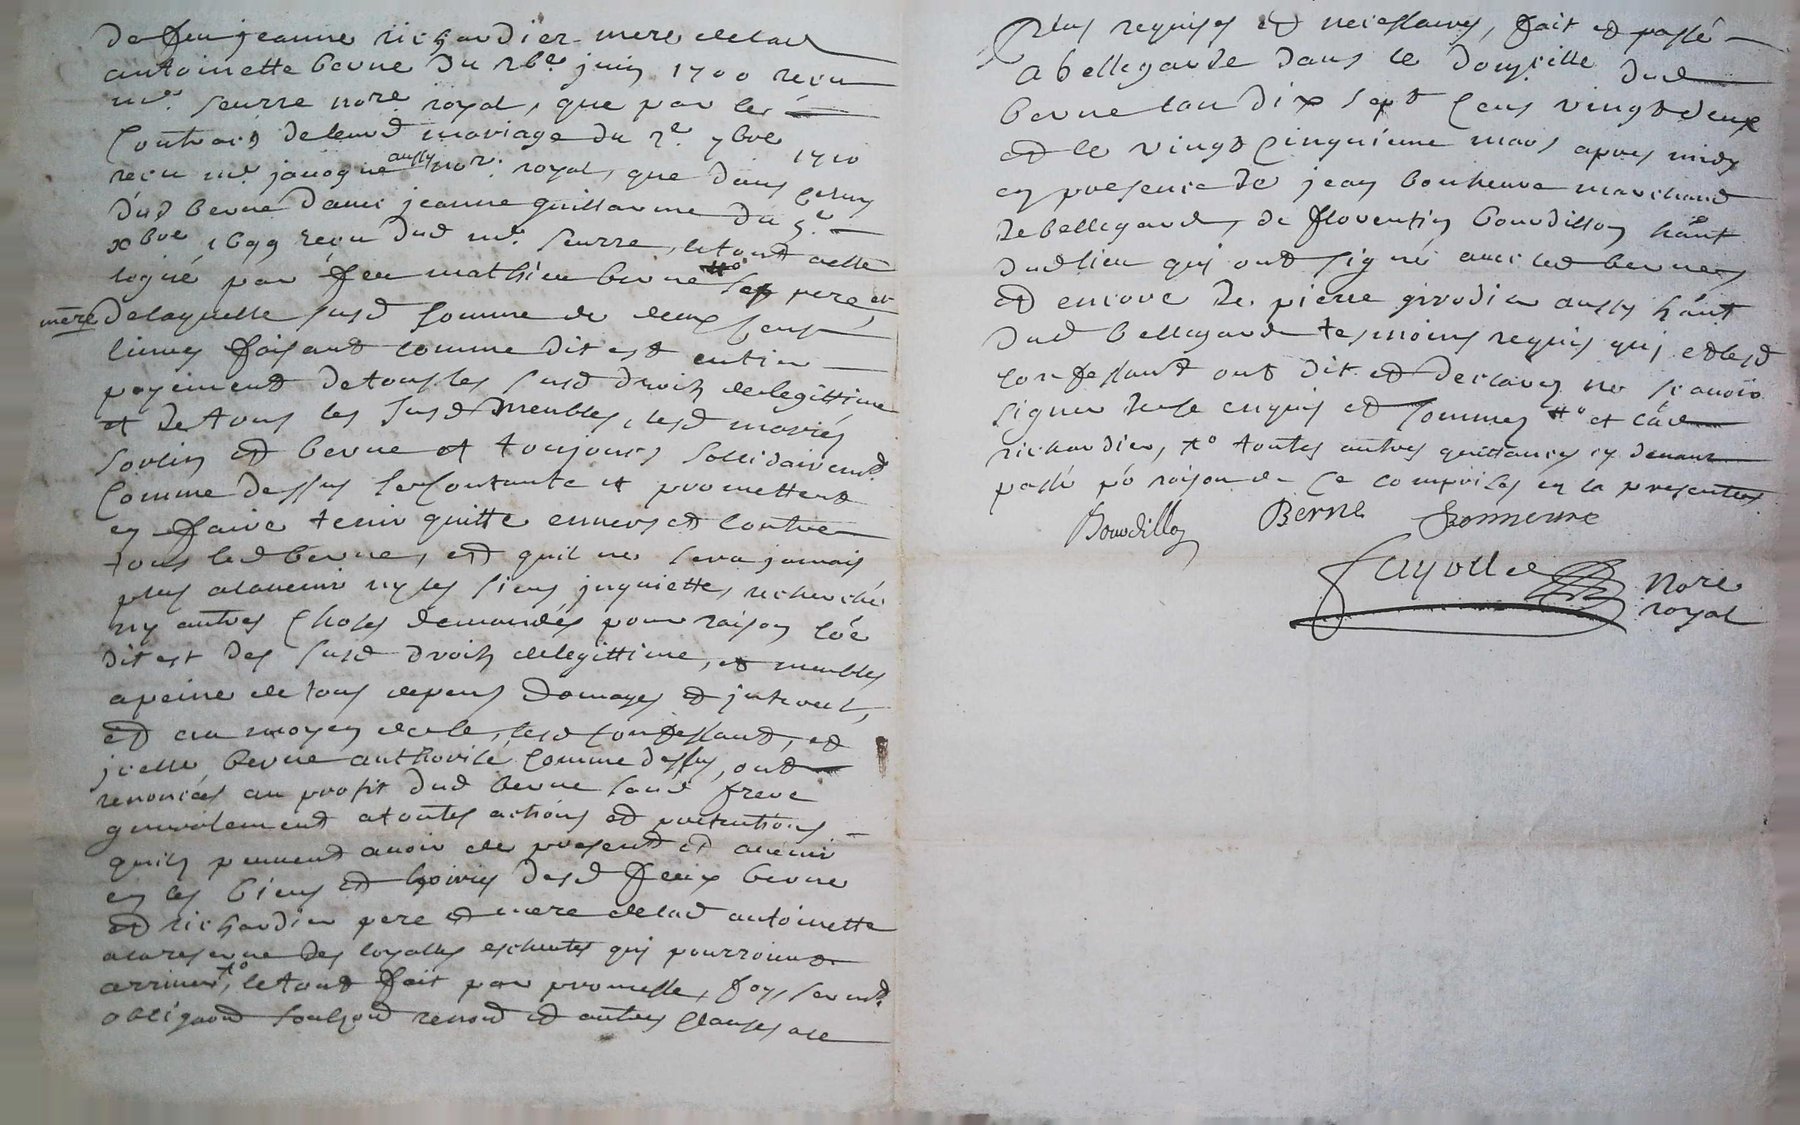 de feu jeanne richardier mere de lad
antoinette berne du 26e juin 1700 receu
me seurre nore royal, que par le
Contract de leurd mariage du 2e 7bre 1710
receu me janogne aussy nore royal, que dans celuy
dud berne d'avec jeanne guillarme du 5e
xbre 1699 receu dud me seurre, le tout acte
legué par feu mathieu berne ses pere et
mere de laquelle susd somme de deux cens
livres faisant comme dit est entier
payement de tous les susd droits de legittime
et de tous les susd meubles, lesd mariés
sorlin et berne et toujours sollidairement
Comme dessus se contante et promettent
en faire tenir quitte envers et contre
tous led berne, et quil ne sera jamais
plus a lavenir ny les siens inquietté, recherché
ny autres choses demandés pour raison coe
dit est des susd droits de legittime, et meubles
a peine de tous depens domages et interest,
et au moyen de ce, lesd confessant, et
icelle berne authorisé Comme dessus, ont
renoncés au profit dud berne leurd frere
generalement a toutes actions et pretentions
quils peuvent avoir de present et avenir
en les biens et hoiries desd feux berne
et richardier pere et mere de lad antoinette
a la reserve des loyalles escheutes qui pourroient
arriver, le tout fait par promesse, foy, serment
obligaon soubzon renonon et autres clauses a ce
Plus requises et necessaires, fait et passé
a bellegarde dans le domicille dud
berne lan dix sept cens vingt deux
et le vingt cinquieme mars apres midy
en presence de jean bonheure marchand
de bellegarde, de florentin bourdillon hant
dud lieu qui ont signé avec led berne
et encore de pierre girodier aussy hant
dud bellegarde tesmoins requis qui et lesd
confessant ont dit et declarez ne scavoir
signer de ce enquis et sommez et lad
richardier, to toutes autres quittances cy devant
passé po raison de ce comprises en la presentes
Bourdillon Berne Bonneure
Fayolle Nore
royal